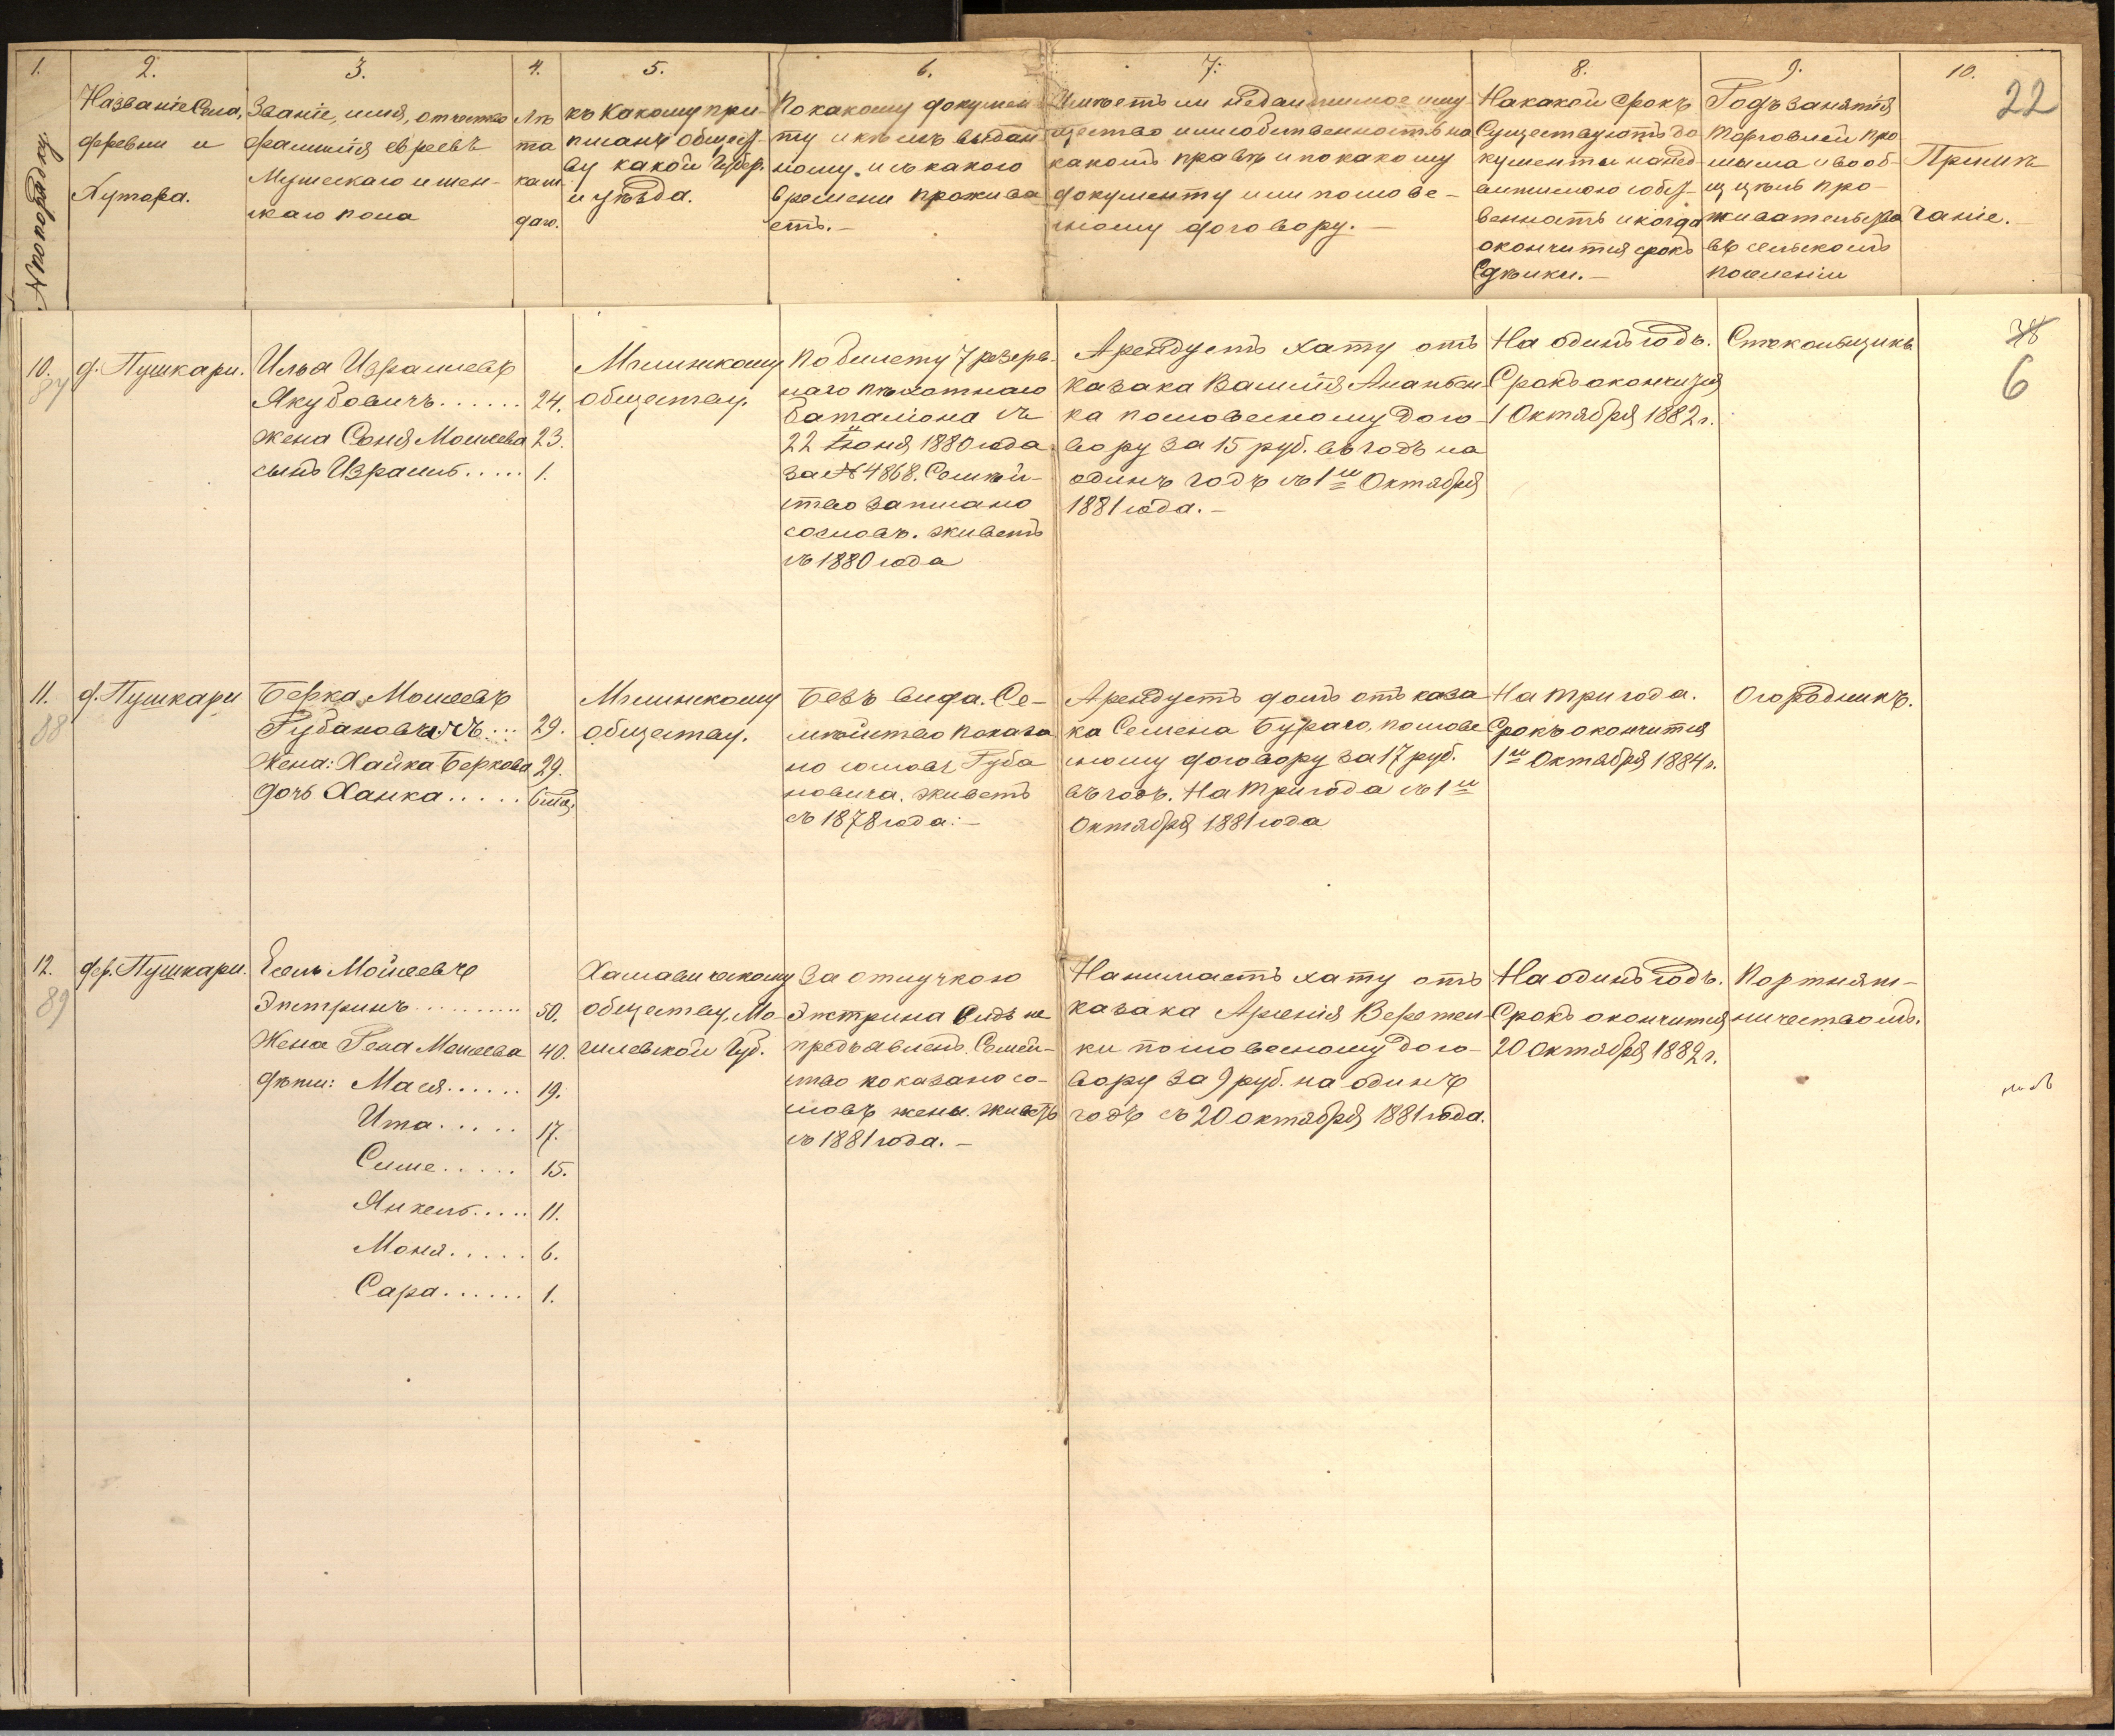 1.
№ по порядку
2.
Названіе Села,
деревни и
Хутора.
3.
Званіе, имя, отчество
фамилія евреевъ
Мужескаго и жен-
скаго пола
4.
Лѣ
та
каж
даго.
5.
къ Какому при-
писанъ общест-
ву какой Губер.
и уѣзда.
6.
По какому докумен
ту и кѣмъ выдан
ному. и съ какого
времени прожива
етъ.-
7.
Имѣетъ ли недвижимое иму
щество или собственность на
какомъ правѣ и по какому
документу или слове-
сному договору.-
8.
На какой срокъ
Существуютъ до
кументы на нед
вижимою собст-
венность и когда
окончится срокъ
Сдѣлки.-
9.
Родъ занятія
торговлей про
мысла и вооб-
щ цѣль про-
живательства
въ сельскомъ
поселеніи
10.
Примѣ
чаніе.
22
10.
87
д. Пушкари.
Илья Израилевъ
Якубовичъ...... 24.
жена Соня Мошеева 23.
сынъ Израиль..... 1.
Мглинскому
обществу.
По билету 7 резерв-
наго пѣхотнаго
баталіона съ
22 Іюня 1880 года
за № 4868. Семѣй-
ство записано
со словъ. живетъ
съ 1880 года
Арендуетъ хату отъ
казака Василія Ананьен
ка по словесному Дого-
вору за 15 руб. въ годъ на
одинъ годъ съ 1го Октября
1881 года.-
На одинъ годъ.
Срокъ окончится
1 Октября 1882 г.
Стекольщикъ.
6
11.
88
д. Пушкари
Берка Мошеевъ
Губановичъ... 29.
Жена: Хайка Беркова 29.
дочь Ханка.....
Мглинскому
обществу.
Безъ вида. Се-
мѣйство показа
но со словъ Губа
новича. живетъ
съ 1878 года:-
Арендуетъ домъ отъ каза
ка Семена Бураго, по слове
сному договору за 17 руб.
въ годъ. На три года съ 1го
Октября 1881 года
На три года.
Срокъ окончится
1го Октября 1884 г.
Огородникъ.
12.
89
дер. Пушкари.
Ель Мойсеевъ
Эпстринъ.......... 50.
Жена Мошеева 40.
дѣти: Мася...... 19.
Ита..... 17.
Симе..... 15.
Янкель..... 11.
Моня..... 6.
Сара...... 1.
Хаславическому
обществу, Мо-
гилевской Губ.
За отлучкою
Эпстрина видъ не
предъявленъ. Семей-
ство показано со
словъ жены. живетъ
съ 1881 года.-
Нанимаетъ хату отъ
казака Арсенія Веретен-
ки по словесному дого-
вору за 9 руб. на одинъ
годъ съ 20 октября 1881 года.
На одинъ годъ.
Срокъ окончится
20 Октября 1882 г.
Портняж-
ничествомъ.